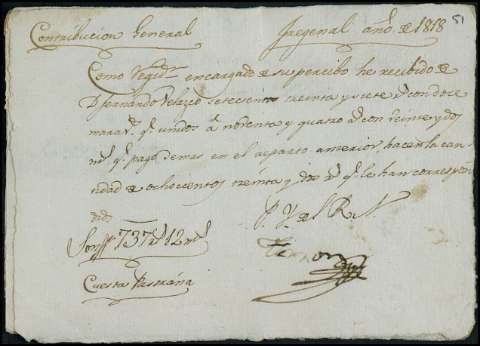 Contribucion General Fregenal año de 1818 51
Como Regidr encargado de su percibo he recibido de
Dn fernando Velazco setecientos treinta y siete rs con doce
maravs qe unidos a noventa y quatro rs con veinte y dos
ms qe pago demas en el reparto anterior, hacen la can-
tidad de ochocientos treinta y dos rs qe le han correspon-
dido
Son 737 rs 12 ms
Cuesta Pastrana